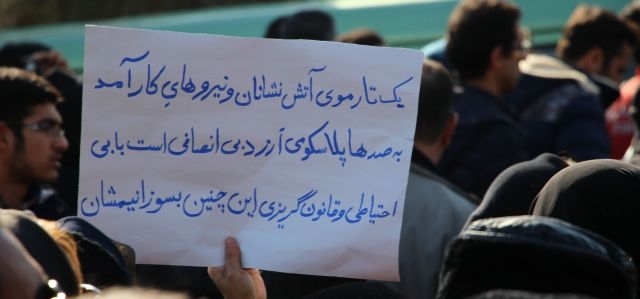 یک تار موی آتش نشانان و نیروهای کارآمد
به صدها پلاسکوی ارزد. بی انصافی است با بی
احتیاطی و قانون گریزی این چنین بسوزانیمشان